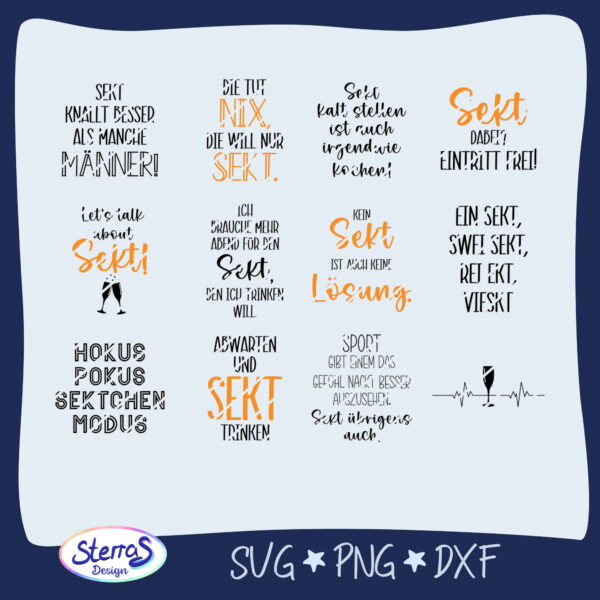 SEKT
KNALLT BESSER,
ALS MANCHE
MÄNNER!
DIE TUT
NIX,
DIE WILL NUR
SEKT.
Sekt
kalt stellen
ist auch
irgendwie
kochen!
Sekt
DABEI?
EINTRITT FREI!
Let's talk
about
Sekt!
ICH
BRAUCHE MEHR
ABEND FÜR DEN
Sekt,
DEN ICH TRINKEN
WILL.
KEIN
Sekt
IST AUCH KEINE
Lösung.
EIN SEKT,
SWEI SEKT,
REI EKT,
VIESKT
HOKUS
POKUS
SEKTCHEN
MODUS
ABWARTEN
UND
SEKT
TRINKEN
SPORT
GIBT EINEM DAS
GEFÜHL NACKT BESSER
AUSZUSEHEN.
Sekt übrigens
auch.
SterraS
Design
SVG★PNG★DXF